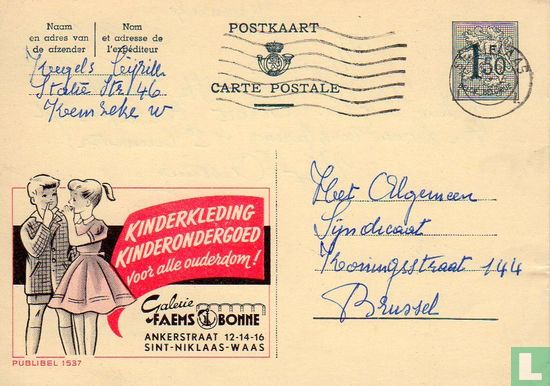 Naam
en adres van
de afzender
Nom
et adresse de
l'expéditeur
POSTKAART
CARTE POSTALE
1,50
Statie Str 46
Kemzeke W
KINDERKLEDING
KINDERONDERGOED
voor alle ouderdom!
Galerie
FAEMS BONNE
ANKERSTRAAT 12-14-16
SINT-NIKLAAS-WAAS
PUBLIBEL 1537
Het Algemeen
Syndicaat
Koningsstraat 144
Brussel
catawiki